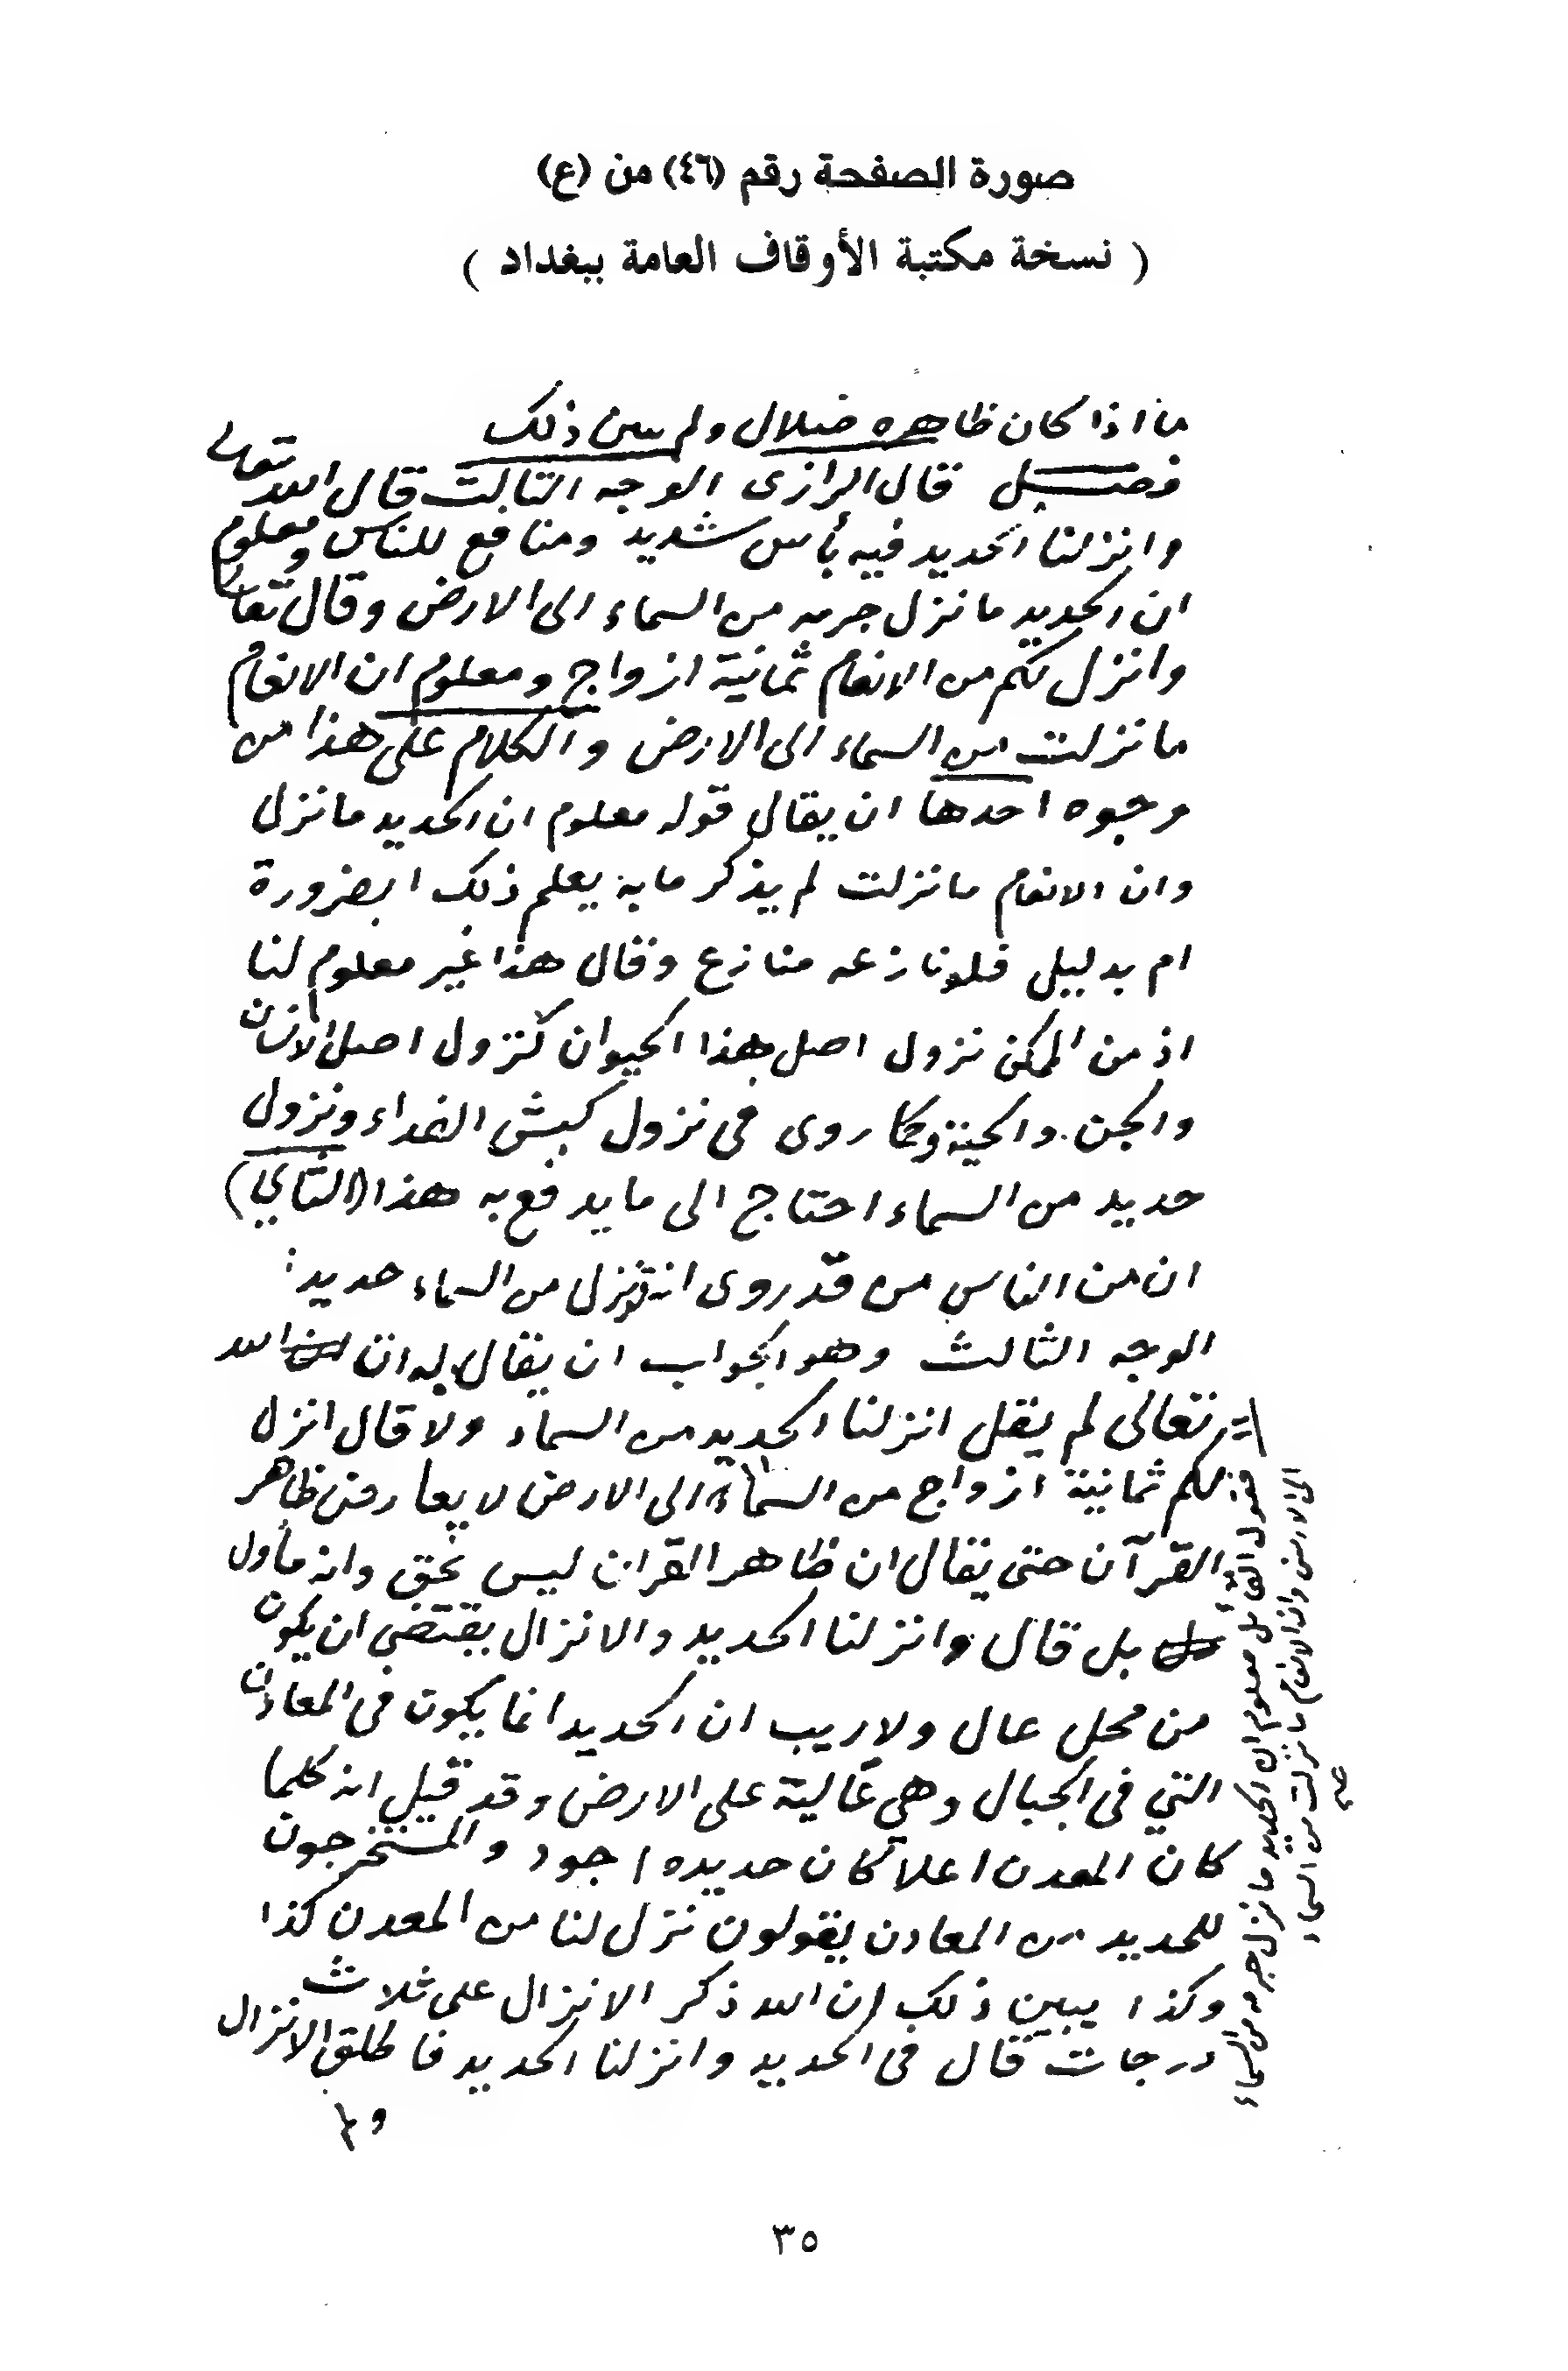 صورة الصفحة رقم (٤٦) من (ع)
( نسخة مكتبة الأوقاف العامة ببغداد )
ما اذا كان ظاهره ضلال ولم يبين ذلك
فصل قال الرازى الوجه الثالث قال الله تعالى
وانزلنا الحديد فيه بأس شديد ومنافع للناس ومعلوم
ان الحديد ما نزل جرمه من السماء الى الارض وقال تعالى
وانزل لكم من الانعام ثمانية ازواج ومعلوم ان الانعام
ما نزلت من السماء الى الارض والكلام على هذا من
وجوه احدها ان يقال قوله معلوم ان الحديد ما نزل
وان الانعام ما نزلت لم يذكر ما به يعلم ذلك ابضرورة
ام بدليل فلو نازعه منازع وقال هذا غير معلوم لنا
اذ من الممكن نزول اصل هذا الحيوان كنزول اصل الانسان
والجن والحية وكما روى فى نزول كبش الفداء ونزول
حديد من السماء احتاج الى ما يدفع به هذا (الثاني)
ان من الناس من قد روى انه نزل من السماء حديد:
الوجه الثالث وهو الجواب ان يقال له ان الله
تعالى لم يقل انزلنا الحديد من السماء ولا قال انزل
لكم ثمانية ازواج من السماء الى الارض لا يعارض ظاهر
القرآن حتى يقال ان ظاهر القران ليس بحق وانه مأول
بل قال وانزلنا الحديد والانزال يقتضي ان يكون
من محل عال ولا ريب ان الحديد انما يكون فى المعادن
التي فى الجبال وهي عالية على الارض وقد قيل انه كلما
كان المعدن اعلا كان حديده اجود والمستخرجون
للحديد من المعادن يقولون نزل لنا من المعدن كذا
وكذا يبين ذلك ان الله ذكر الانزال على ثلاث
درجات قال فى الحديد وانزلنا الحديد فاطلق الانزال
ولم
فقول القائل معلوم ان الحديد ما نزل جرمه من السماء
الى الارض وان الانعام ما نزلت من السماء
صح
٣٥